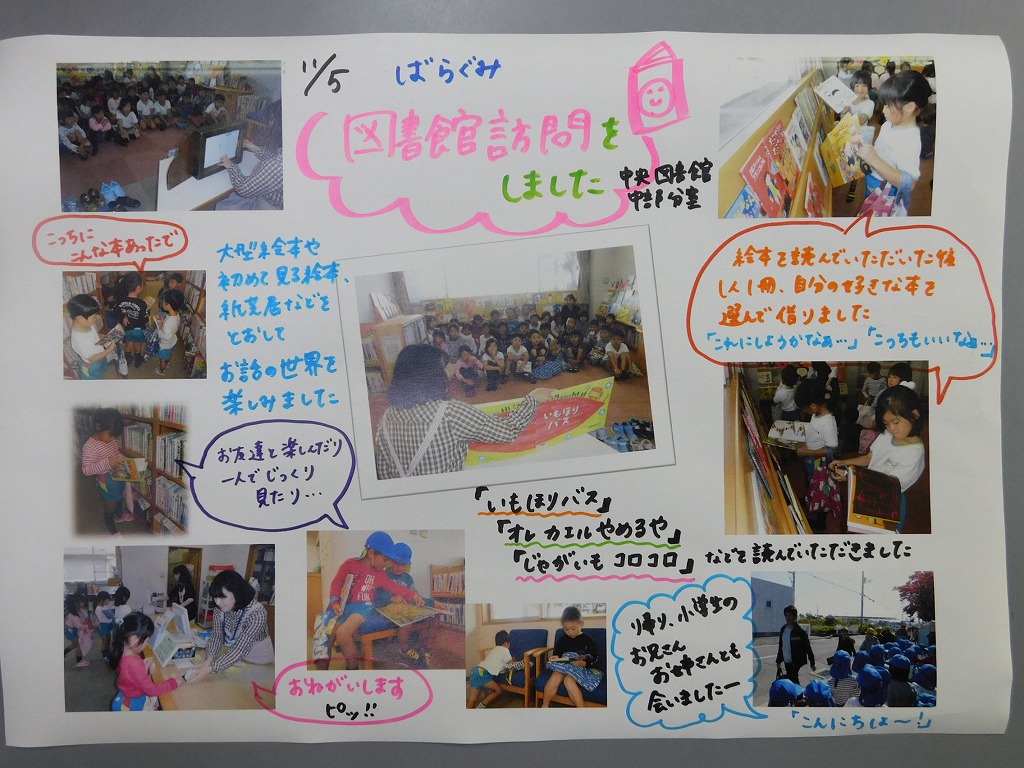 11/5 ばらぐみ
図書館訪問を
しました
中央図書館
中部分室
こっちに
こんな本あったで
大型絵本や
初めて見る絵本、
紙芝居などを
とおして
お話の世界を
楽しみました
絵本を読んでいただいた後
1人1冊、自分の好きな本を
選んで借りました
「これにしようかなぁ…」「こっちもいいなぁ…」
お友達と楽しんだり
一人でじっくり
見たり…
いもほり
バス
「いもほりバス」
「オレ カエルやめるや」
「じゃがいもコロコロ」などを読んでいただきました
おねがいします
ピッ!!
帰り、小学生の
お兄さん
お姉さんとも
会いましたー
「こんにちはー!」